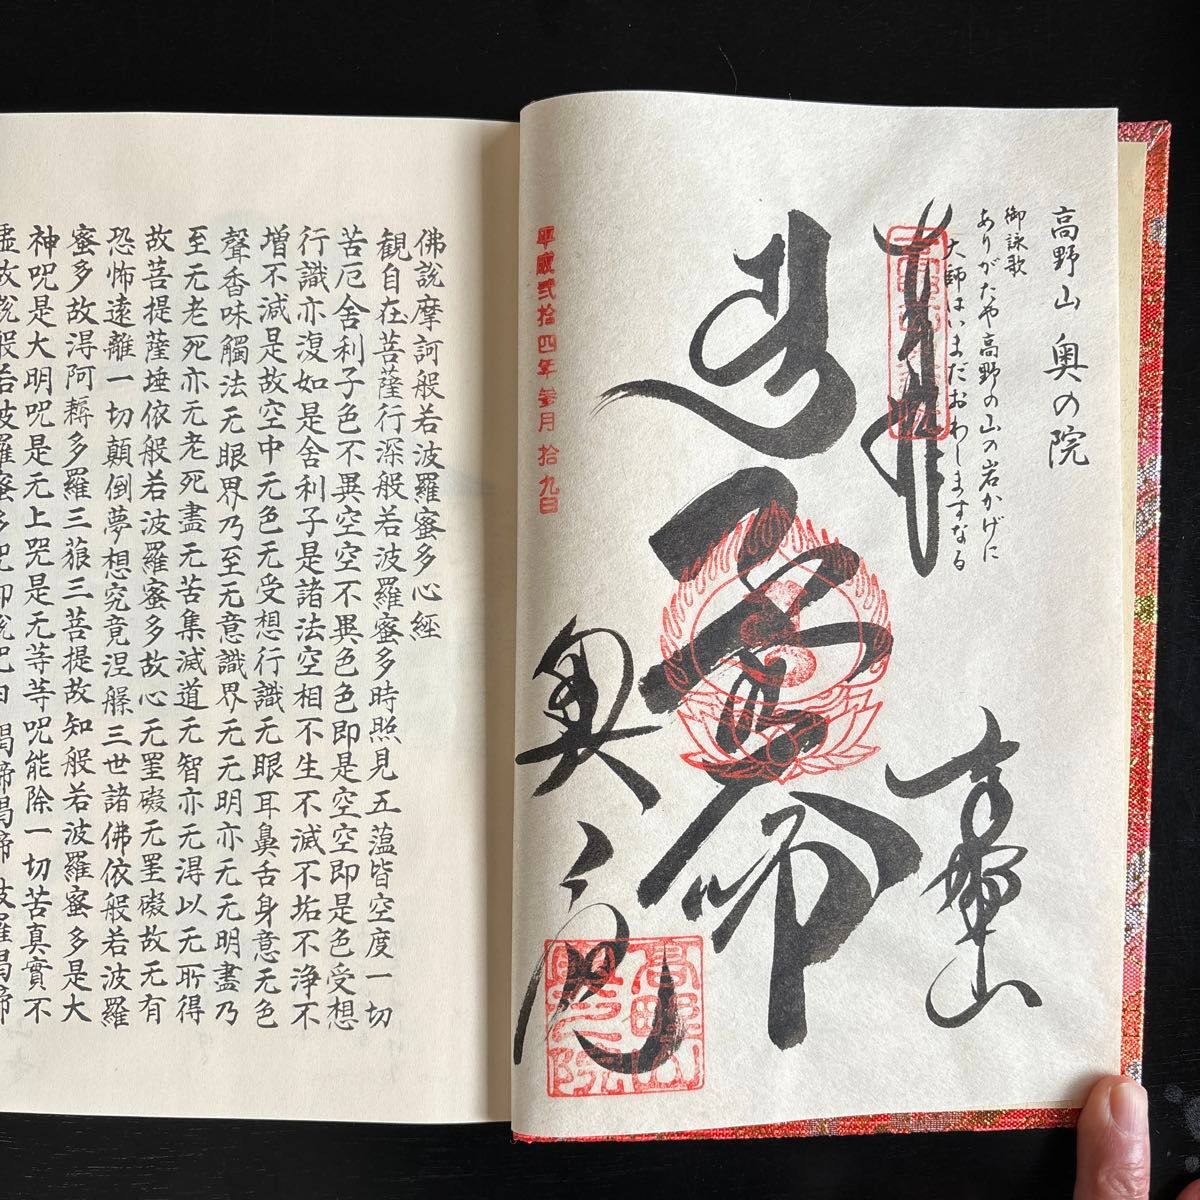 高野山 奥の院
御詠歌
ありがたや高野の山の岩かげに
大師はいまだおわしますなる
奉拝
高野山
奥之院
平成弐拾四年参月拾九日
高野山
奥之院
佛說摩訶般若波羅蜜多心經
観自在菩薩行深般若波羅蜜多時照見五蕰皆空度一切
苦厄舍利子色不異空空不異色色即是空空即是色受想
行識亦復如是舍利子是諸法空相不生不滅不垢不浄不
増不減是故空中无色无受想行識无眼耳鼻舌身意无色
聲香味觸法无眼界乃至无意識界无无明亦无无明盡乃
至无老死亦无老死盡无苦集滅道无智亦无得以无所得
故菩提薩埵依般若波羅蜜多故心无罣礙无罣礙故无有
恐怖遠離一切顛倒夢想究竟涅槃三世諸佛依般若波羅
蜜多故得阿耨多羅三藐三菩提故知般若波羅蜜多是大
神呪是大明呪是无上呪是无等等呪能除一切苦真實不
虚故說般若波羅蜜多呪即說呪曰 羯諦羯諦 波羅羯諦